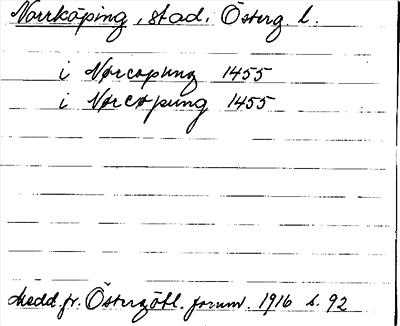 Norrköping, stad. Österg l.
i Nørcopung 1455
i Nørcøpung 1455
Medd. fr. Östergötl. fornm. 1916 s. 92